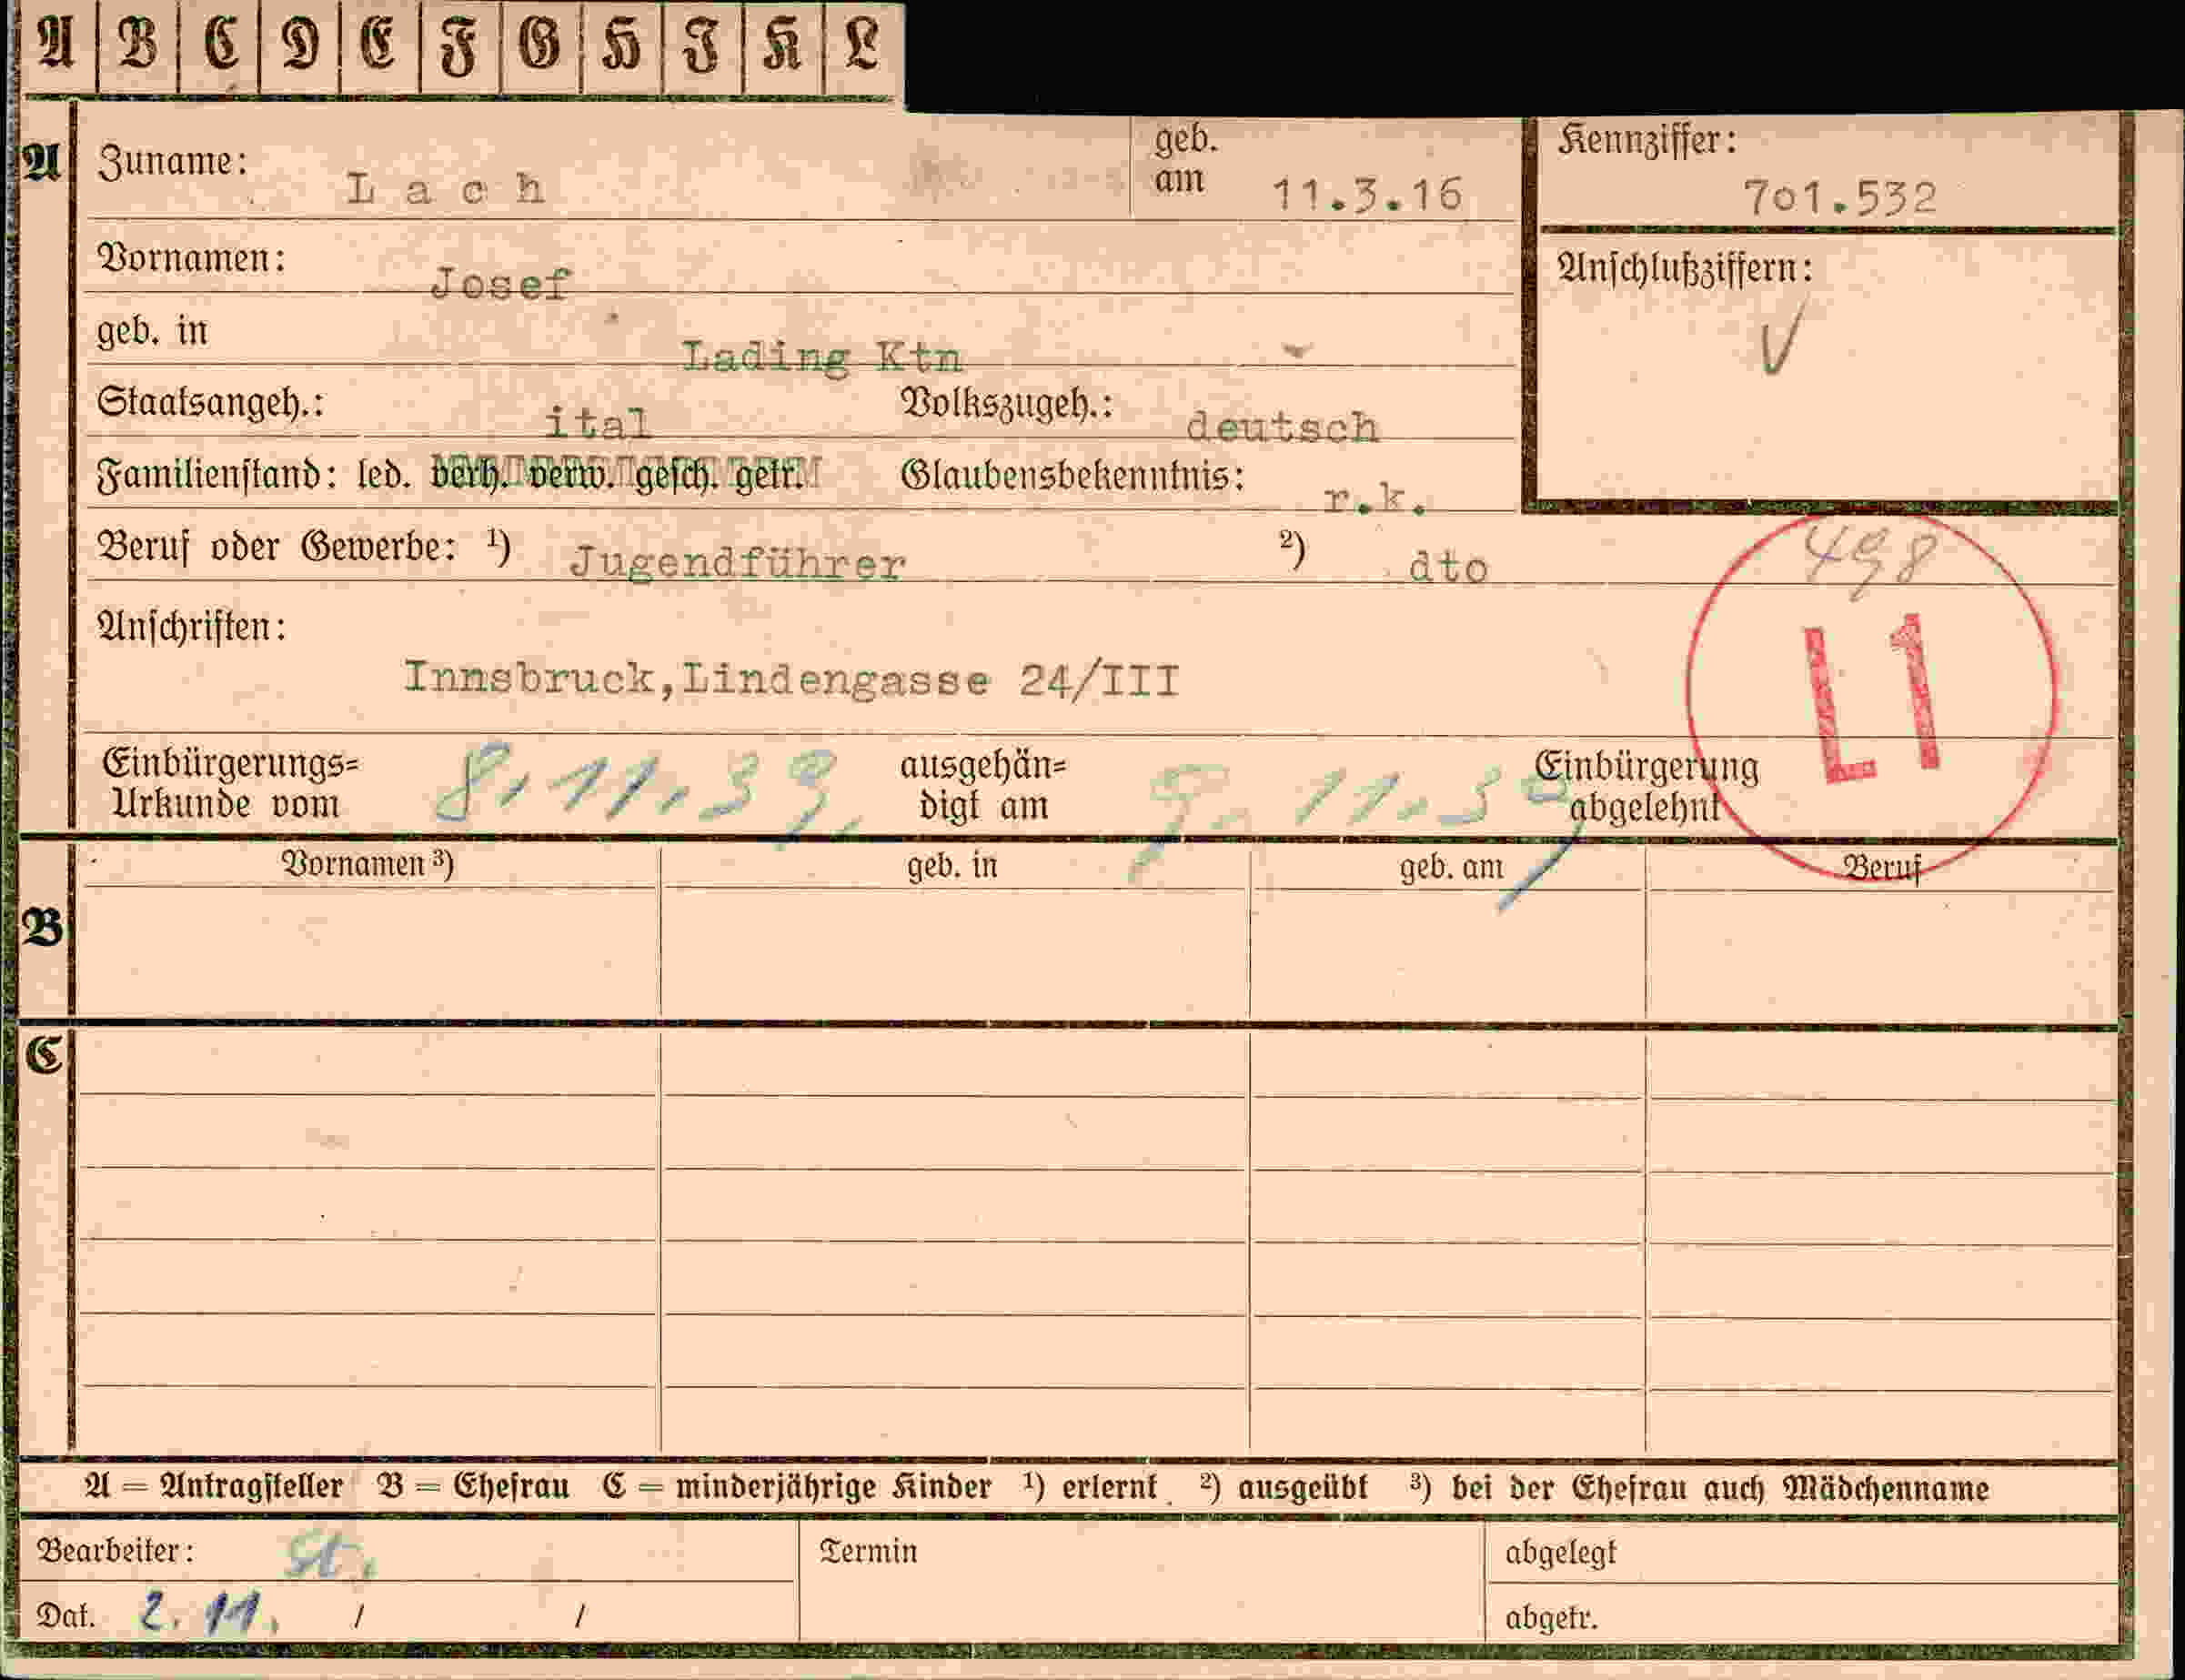 A B C D E F G H I K L
A Zuname: Lach geb. am 11.3.16 Kennziffer: 701.532
Vornamen: Josef Anschlußziffern:
geb. in Lading Ktn
Staatsangeh.: ital Volkszugeh.: deutsch
Familienstand: led. verh. verw. gesch. getr. Glaubensbekenntnis: r.k.
Beruf oder Gewerbe: ¹) Jugendführer ²) dto 498
Anschriften:
Innsbruck,Lindengasse 24/III L1
Einbürgerungs= 8.11.39. ausgehän= 9.11.39 Einbürgerung
Urkunde vom digt am abgelehnt
Vornamen ³) geb. in geb. am Beruf
B
C
A = Antragsteller B = Ehefrau C = minderjährige Kinder ¹) erlernt ²) ausgeübt ³) bei der Ehefrau auch Mädchenname
Bearbeiter: St. Termin abgelegt
Dat. 2.11. / / abgetr.